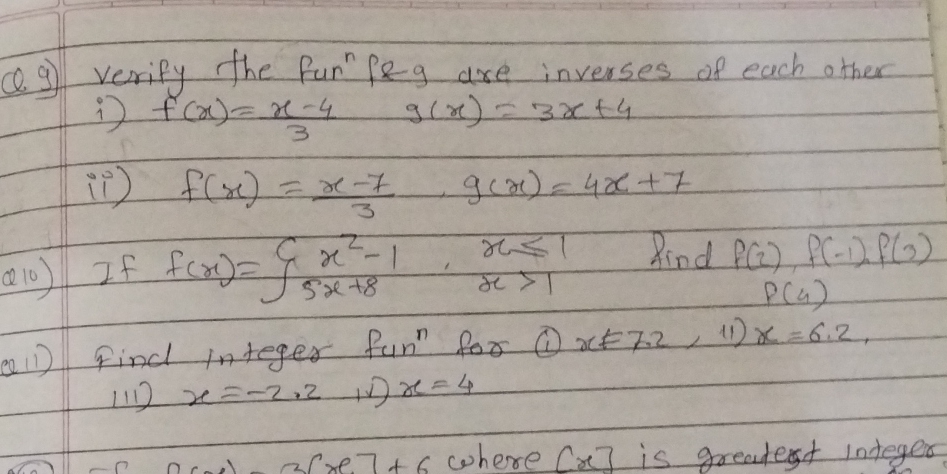 Q.9) Verify the funⁿ f & g are inverses of each other
i) f(x) = x-4/3 g(x) = 3x+4
ii) f(x) = x-7/3, g(x) = 4x+7
Q10) If f(x) = { x²-1, x≤1 find f(2), f(-1), f(3)
5x+8 x>1 f(4)
Q.11) Find integer funⁿ for i) x=7.2, ii) x=6.2,
iii) x=-2.2 iv) x=4
3[x]+6 where [x] is greatest integer